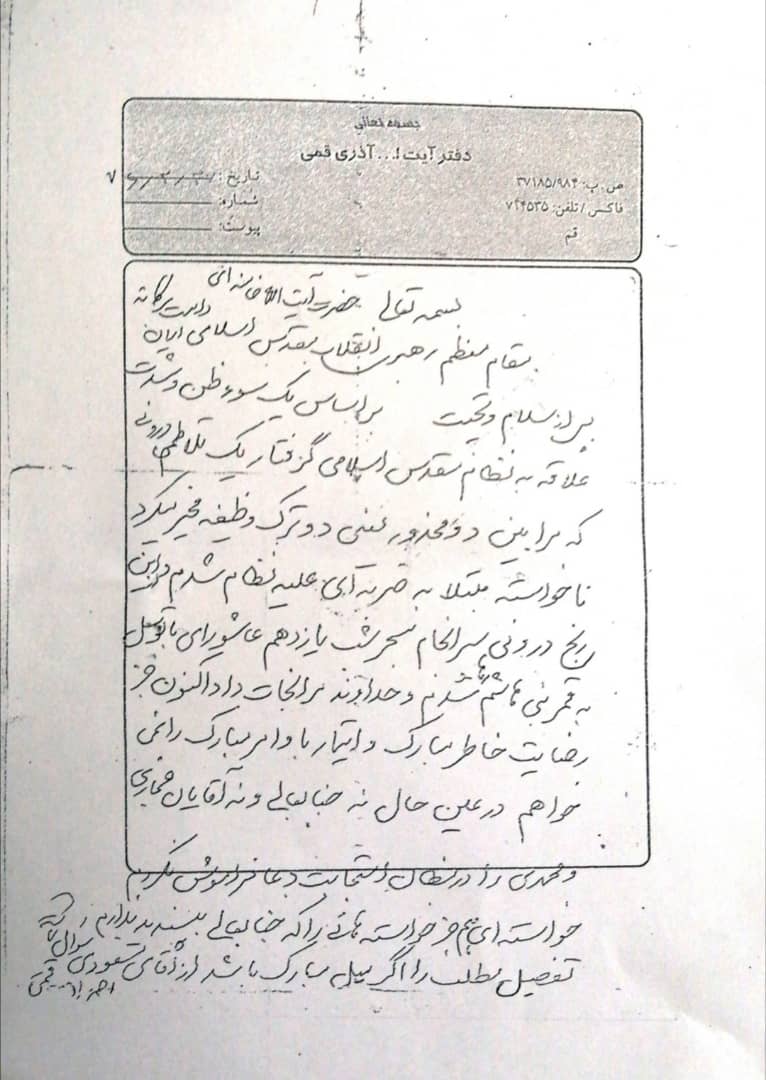 بسمه تعالی
دفتر آیت ا... آذری قمی
ص. ب: ۳۷۱۸۵/۹۸۴
فاکس / تلفن: ۷۴۴۵۳۵
قم
تاریخ:
شماره:
پیوست:
بسمه تعالی حضرت آیت الله خامنه‌ای دامت برکاته
مقام معظم رهبری انقلاب مقدس اسلامی ایران
پس از سلام و تحیت براساس یک سوءظن و شدت
علاقه به نظام مقدس اسلامی گرفتار یک تلاطم درونی
که مرا بین دو محذور یعنی دو ترک وظیفه مخیر میکرد
ناخواسته مبتلا به ضربه‌ای علیه نظام شدم و این
رنج درونی سرانجام سحر شب یازدهم عاشورای با توسل
به قمر بنی هاشم شدم و خداوند مرا نجات داد اکنون جز
رضایت خاطر مبارک و اوامر مبارک را نمی
خواهم در عین حال نه جنابعالی و نه آقایان
و محمدی را در استجابت دعا فراموش نکردم
خواسته‌ای هم جز خواسته هائی را که جنابعالی بپسندید ندارم
تفصیل مطلب را اگر میل مبارک باشد از آقای مسعودی سوال